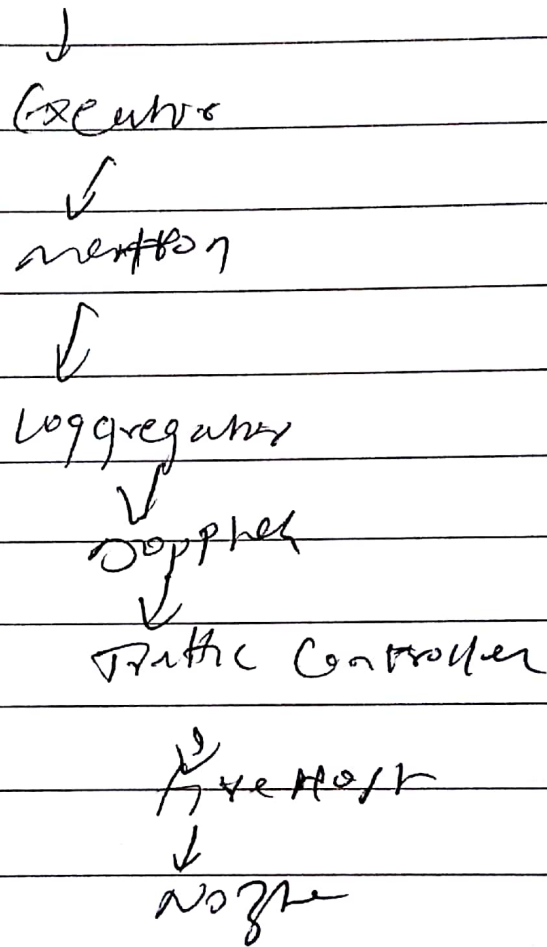 Executor
metron
Loggregator
Doppler
Traffic Controller
Fire Hose
Nozzle